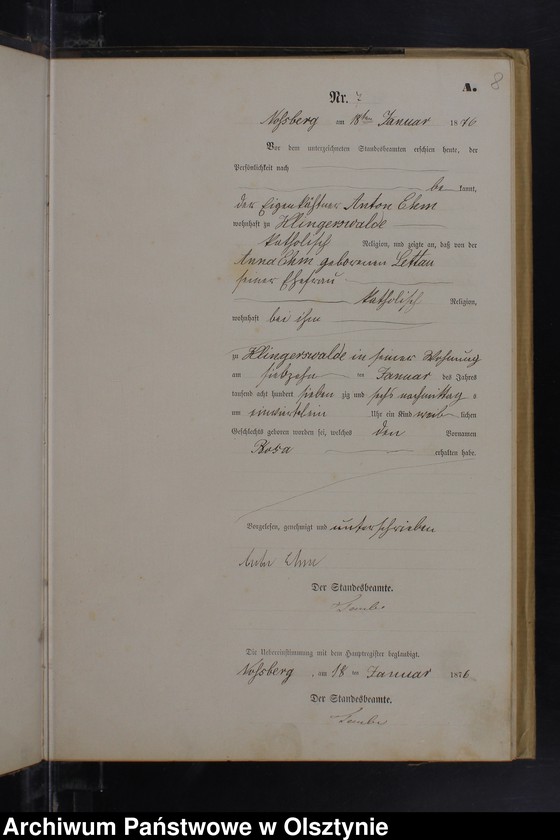 A. 8
Nr. 7
Voßberg am 18ten Januar 1876
Vor dem unterzeichneten Standesbeamten erschien heute, der
Persönlichkeit nach
be kannt,
der Eigenkäthner Anton Ehm
wohnhaft zu Klingerswalde
katholisch Religion, und zeigte an, daß von der
Anna Ehm geborenen Lettau
seiner Ehefrau
katholisch Religion,
wohnhaft bei ihm
zu Klingerswalde in seiner Wohnung
am siebzehn ten Januar des Jahres
tausend acht hundert sieben zig und sechs nachmittags
um ein Uhr ein Kind weib lichen
Geschlechts geboren worden sei, welches den Vornamen
Rosa erhalten habe.
Vorgelesen, genehmigt und unterschrieben
Anton Ehm
Der Standesbeamte.
Die Uebereinstimmung mit dem Hauptregister beglaubigt.
Voßberg, am 18 ten Januar 1876
Der Standesbeamte.
Archiwum Państwowe w Olsztynie